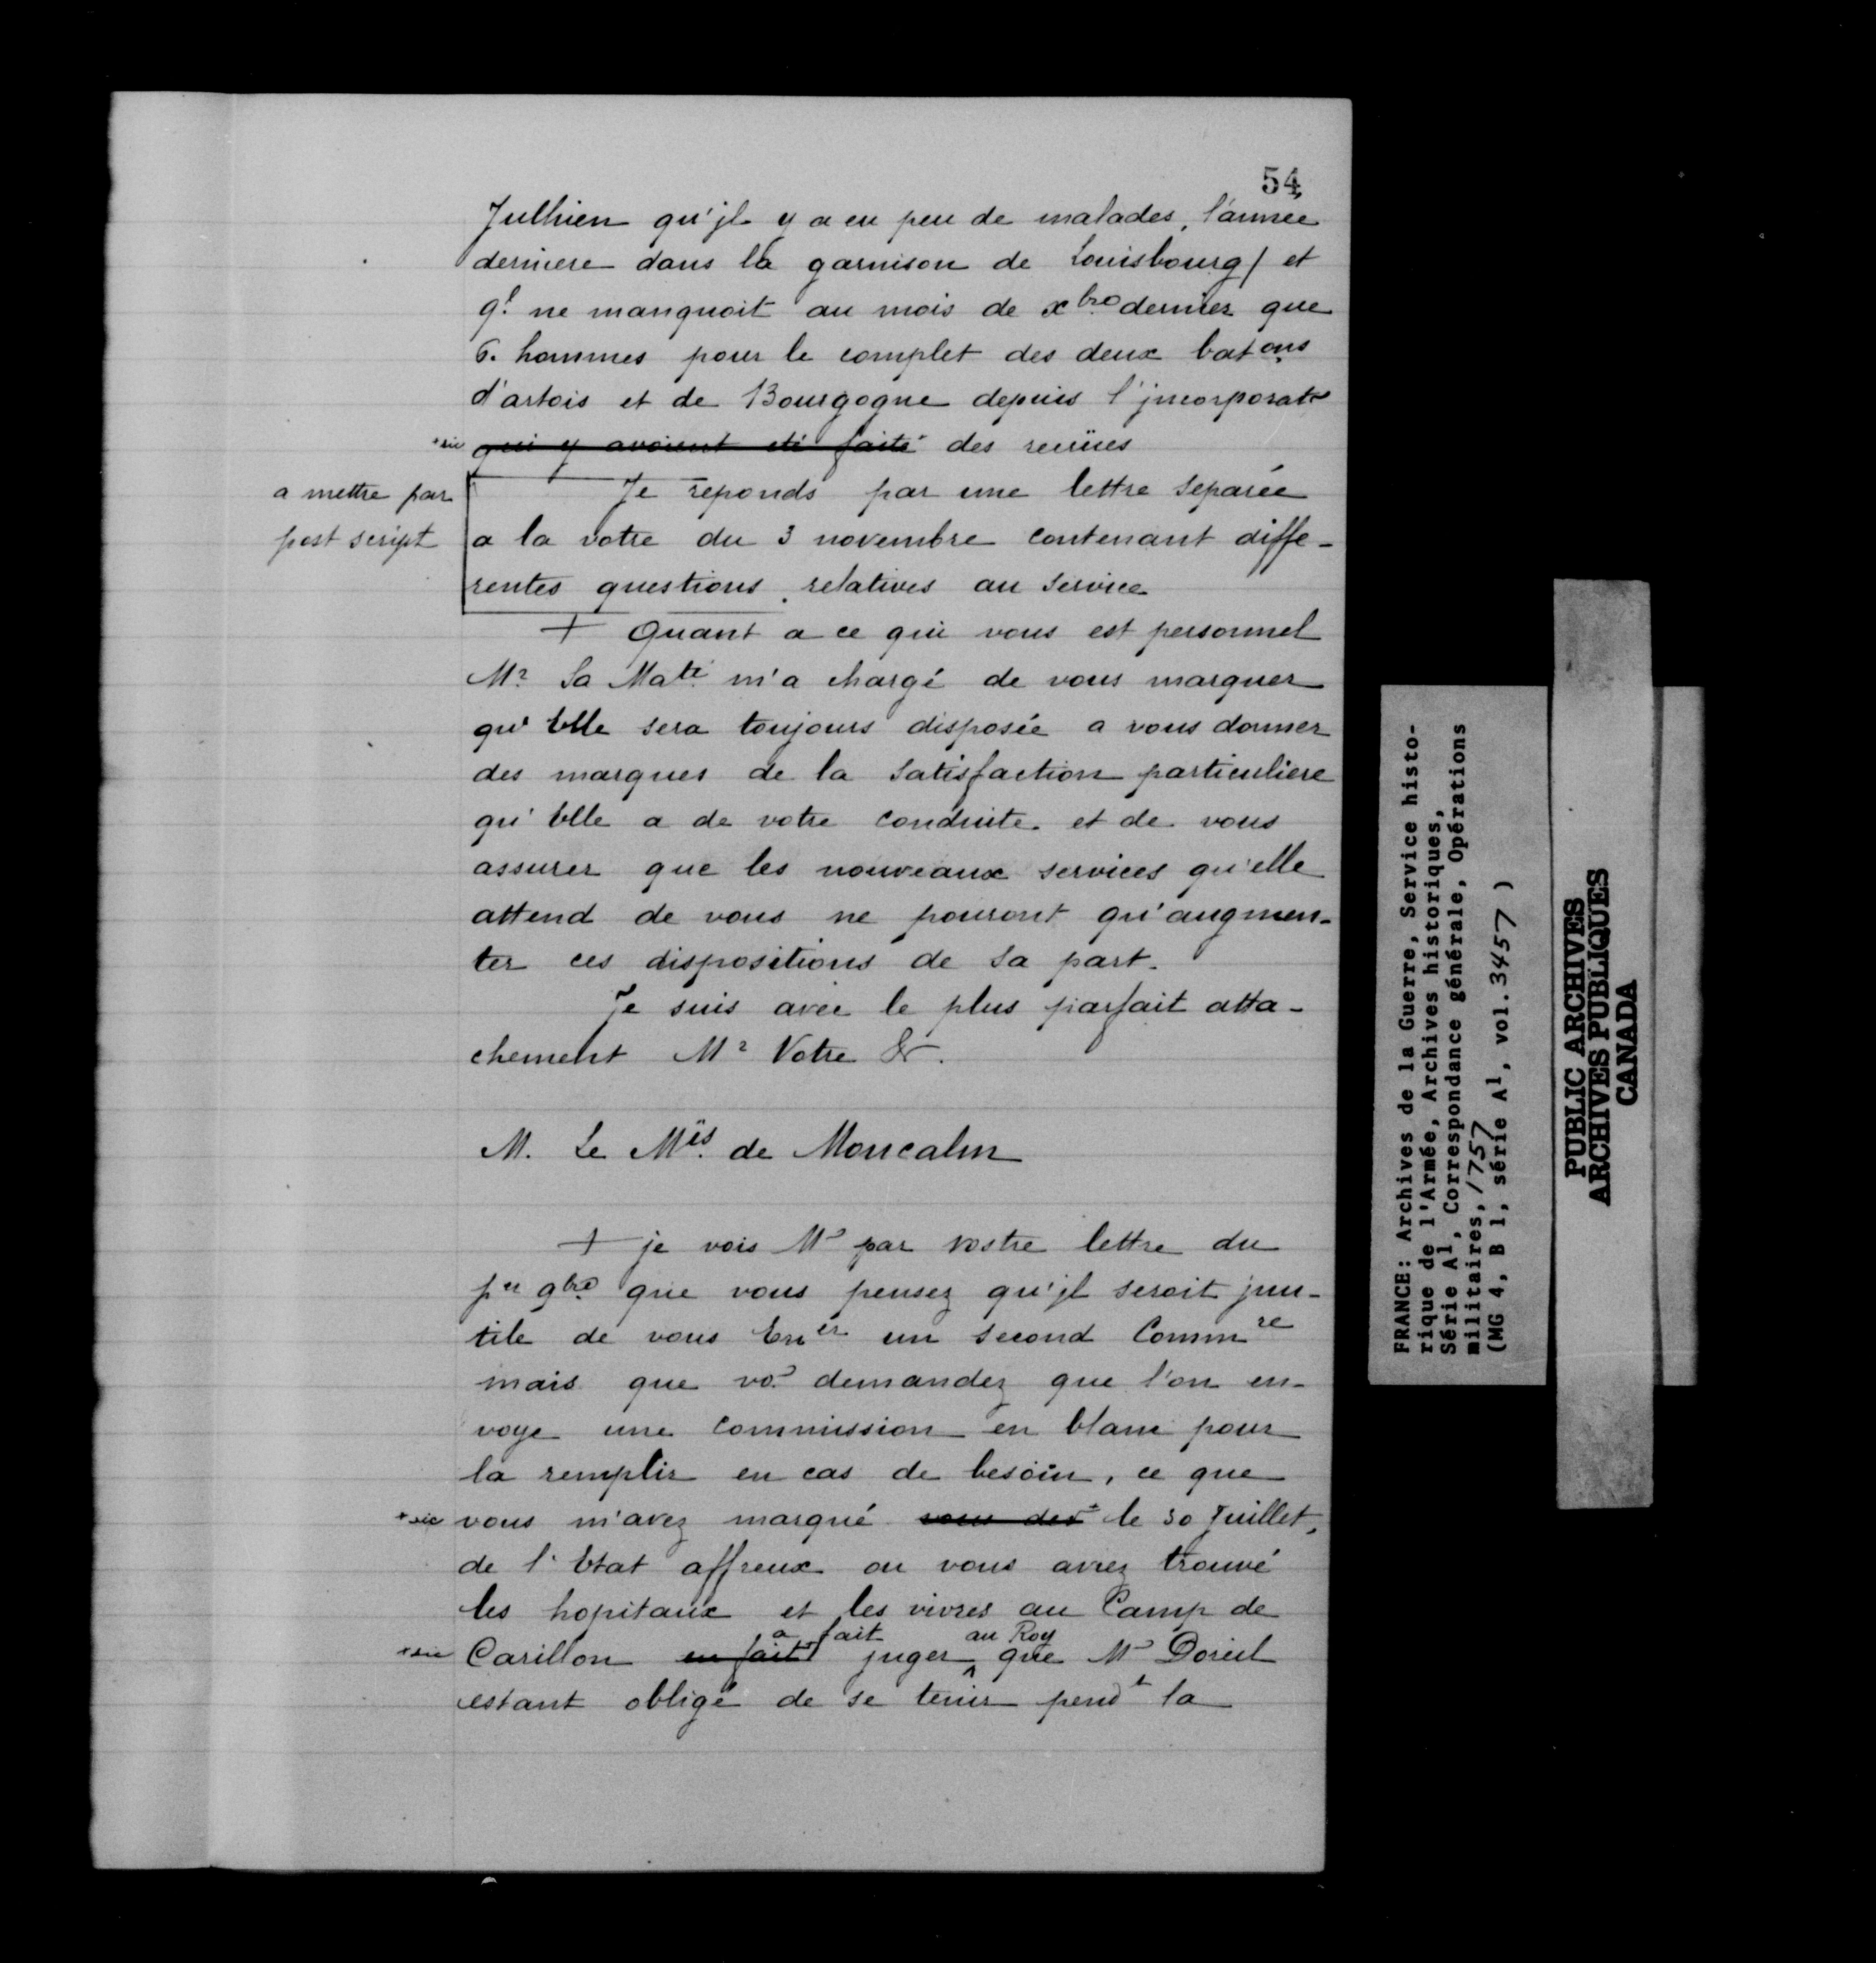 54
Jullhien qu'jl y a eu peu de malades, l'année
derniere dans la garnison de Louisbourg/ et
ql ne manquoit au mois de xbre dernier que
6. hommes pour le complet des deux batons
d'artois et de Bourgogne depuis l'jncorporaton
*sic qui y avoient eté faite* des recrües
a mettre par
post script
Je reponds par une lettre separée
a la votre du 3 novembre contenant diffe-
rentes questions relatives au service
+ Quant a ce qui vous est personnel
Mr Sa Maté m'a chargé de vous marquer
qu'Elle sera toujours disposée a vous donner
des marques de la satisfaction particuliere
qu'Elle a de votre conduite et de vous
assurer que les nouveaux services qu'elle
attend de vous ne pouront qu'augmen-
ter ces dispositions de sa part.
Je suis avec le plus parfait atta-
chement Mr Votre &.
M. Le Mis de Moncalm
+ je vois Mr par vostre lettre du
per 9bre que vous pensez qu'jl seroit jnu-
tile de vous Ener un second Commre
mais que vo. demandez que l'on en-
voye une commission en blanc pour
la remplir en cas de besoin, ce que
*sic vous m'avez marqué vous der* le 30 Juillet,
de l'Etat affreux ou vous aviez trouvé
les hopitaux et les vivres au Camp de
a fait au Roy
*sic Carillon en fait* juger ^ que Mr Doreil
estant obligé de se tenir pendt la
FRANCE: Archives de la Guerre, Service histo-
rique de l'Armée, Archives historiques,
Série A1, Correspondance générale, Opérations
militaires, 1757
(MG 4, B 1, série A1, vol. 3457 )
PUBLIC ARCHIVES
ARCHIVES PUBLIQUES
CANADA